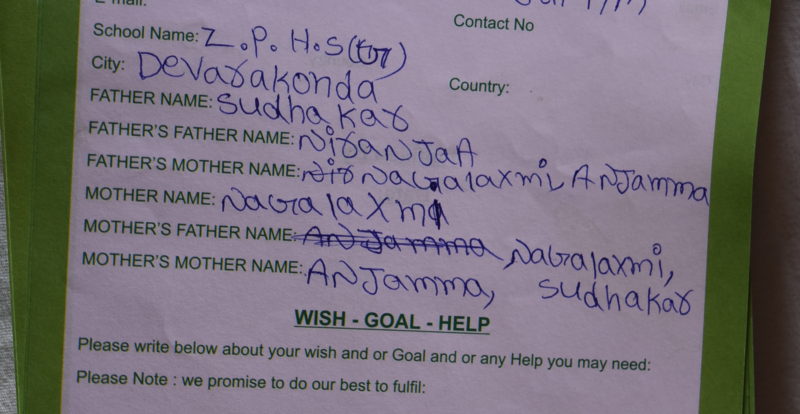 E-mail:
Contact No
School Name: Z.P.H.S
City: Devarakonda
Country:
FATHER NAME: Sudhakar
FATHER'S FATHER NAME: Niranjan
FATHER'S MOTHER NAME: Nagalaxmi, ANJamma
MOTHER NAME: Nagalaxmi
MOTHER'S FATHER NAME: ANJamma, Nagalaxmi,
MOTHER'S MOTHER NAME: ANJamma, Sudhakar
WISH - GOAL - HELP
Please write below about your wish and or Goal and or any Help you may need:
Please Note : we promise to do our best to fulfil: